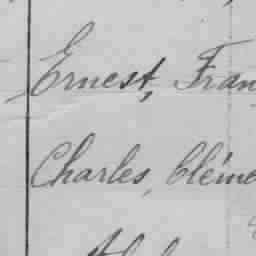 Ernest, Fran
Charles, Cléme